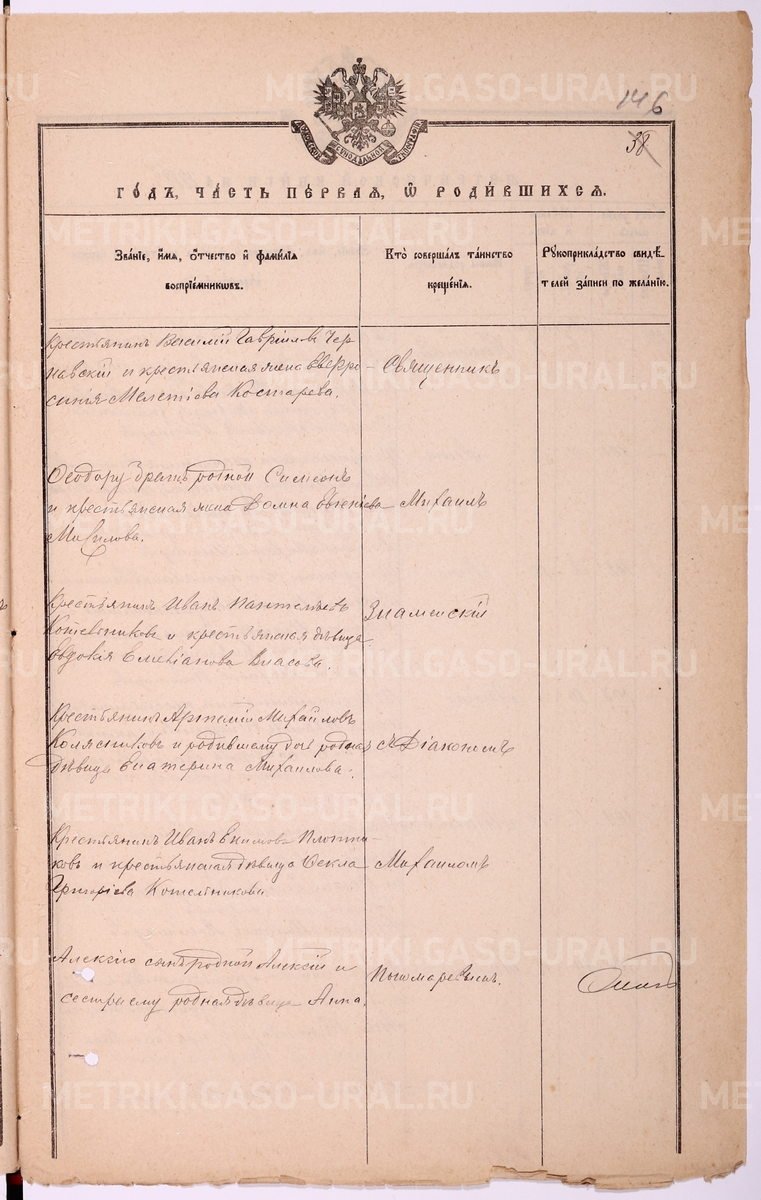 METRIKI.GASO-URAL.RU
146
38
МОСКОВСКОЙ СѴНОДАЛЬНОЙ ТИПОГРАФІИ
ГО́ДЪ, ЧА́СТЬ ПЕ́РВАѦ, Ѡ҆ РОДИ́ВШИХСѦ.
Зва́нїе, и҆́мѧ, ѻ҆́тчество и҆ фами́лїѧ воспрїе́мникѡвъ.
Кто̀ соверша́лъ та́инство креще́нїѧ.
Рꙋкоприкла́дство свидѣ́телей за́писи по жела́нїю.
Крестьянинъ Василій Гавріиловъ Чер-
навскій и крестьянская жена Евфро-
синія Мелетіева Костарева.
Священникъ
Ѳеодору братъ родной Симеонъ
и крестьянская жена Домна
Михаилъ
Крестьянинъ Иванъ Пантелеевъ
Котельниковъ и крестьянская дѣвица
Евдокія Емеліанова Власова.
Знаменскій
Крестьянинъ Артемій Михайловъ
Колясниковъ и родившему дочь родная
дѣвица Екатерина Михаилова.
съ Діакономъ
Крестьянинъ Иванъ Екимовъ Плотни-
ковъ и крестьянская дѣвица Ѳекла
Григоріева Котельникова
Михаиломъ
Алексію сынъ родной Алексій и
сестра ему родная дѣвица Анна.